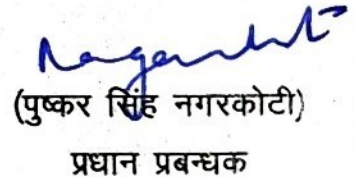 (पुष्कर सिंह नगरकोटी)
प्रधान प्रबन्धक